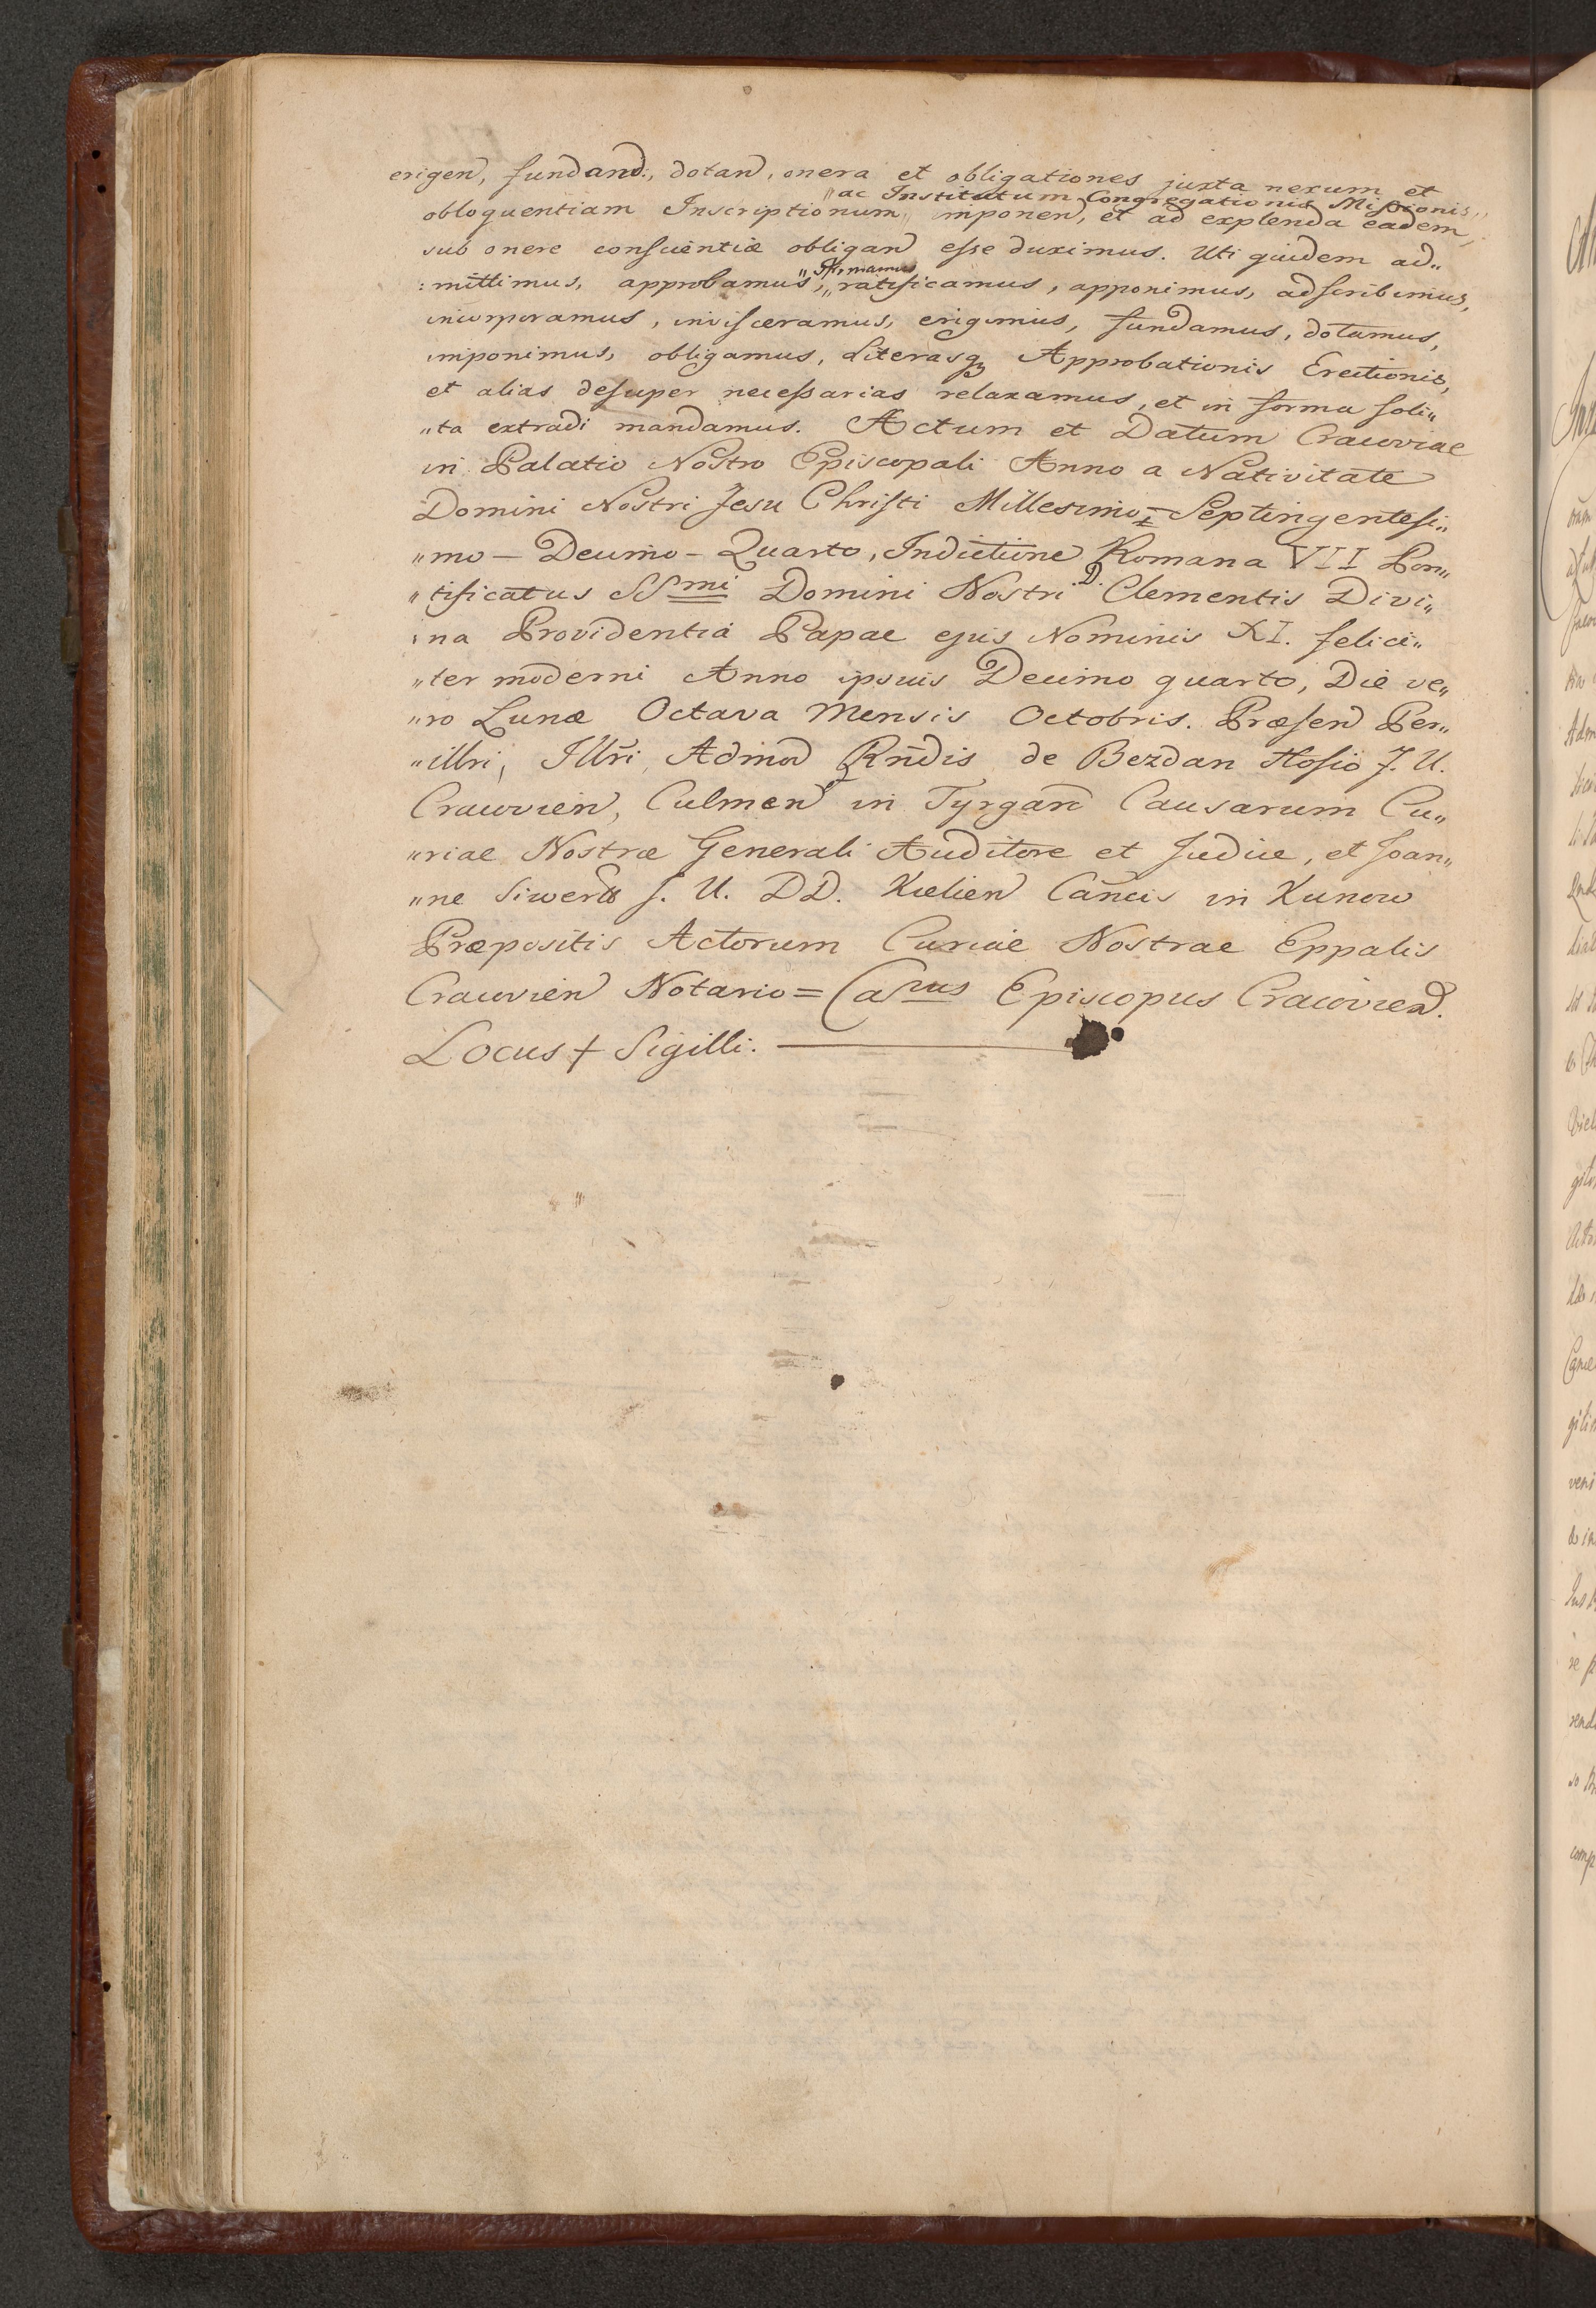 erigen, fundand:, dotand, onera et obligationes juxta nexum et
"ac Institutum Congregationis Missionis"
obloquentiam Inscriptionum" imponen, et ad explenda eadem,
sub onere conscientiæ obligand esse duximus. Uti quidem ad„
:mittimus, approbamus, "firmamus" ratificamus, apponimus, adscribimus,
incorporamus, invisceramus, erigimus, fundamus, dotamus,
imponimus, obligamus, Literasq3 Approbationis Erectionis,
et alias desuper necessarias relaxamus, et in forma soli„
„ta extradi mandamus. Actum et Datum Cracoviae
in Palatio Nostro Episcopali Anno a Nativitate
Domini Nostri Jesu Christi Millesimo = Septingentesi„
„mo – Decimo – Quarto, Indictione Romana VII Pon„
„tificatus SSmi Domini Nostri D. Clementis Divi„
:na Providentia Papae ejus Nominis XI. felici„
„ter moderni Anno ipsius Decimo quarto, Die ve„
„ro Lunæ Octava Mensis Octobris. Præsend Per„
„illri, Illri Admod Rndis de Bezdan Hosio J. U.
Cracovien, Culmen in Tyrgard Causarum Cu„
„riae Nostræ Generali Auditore et Judice, et Joan„
„ne Siwerts J. U. DD. Kielien Cancis in Kunow
Præpositis Actorum Curiae Nostrae Eppalis
Cracovien Notario = Casrus Episcopus Cracovien.
Locus + Sigilli.